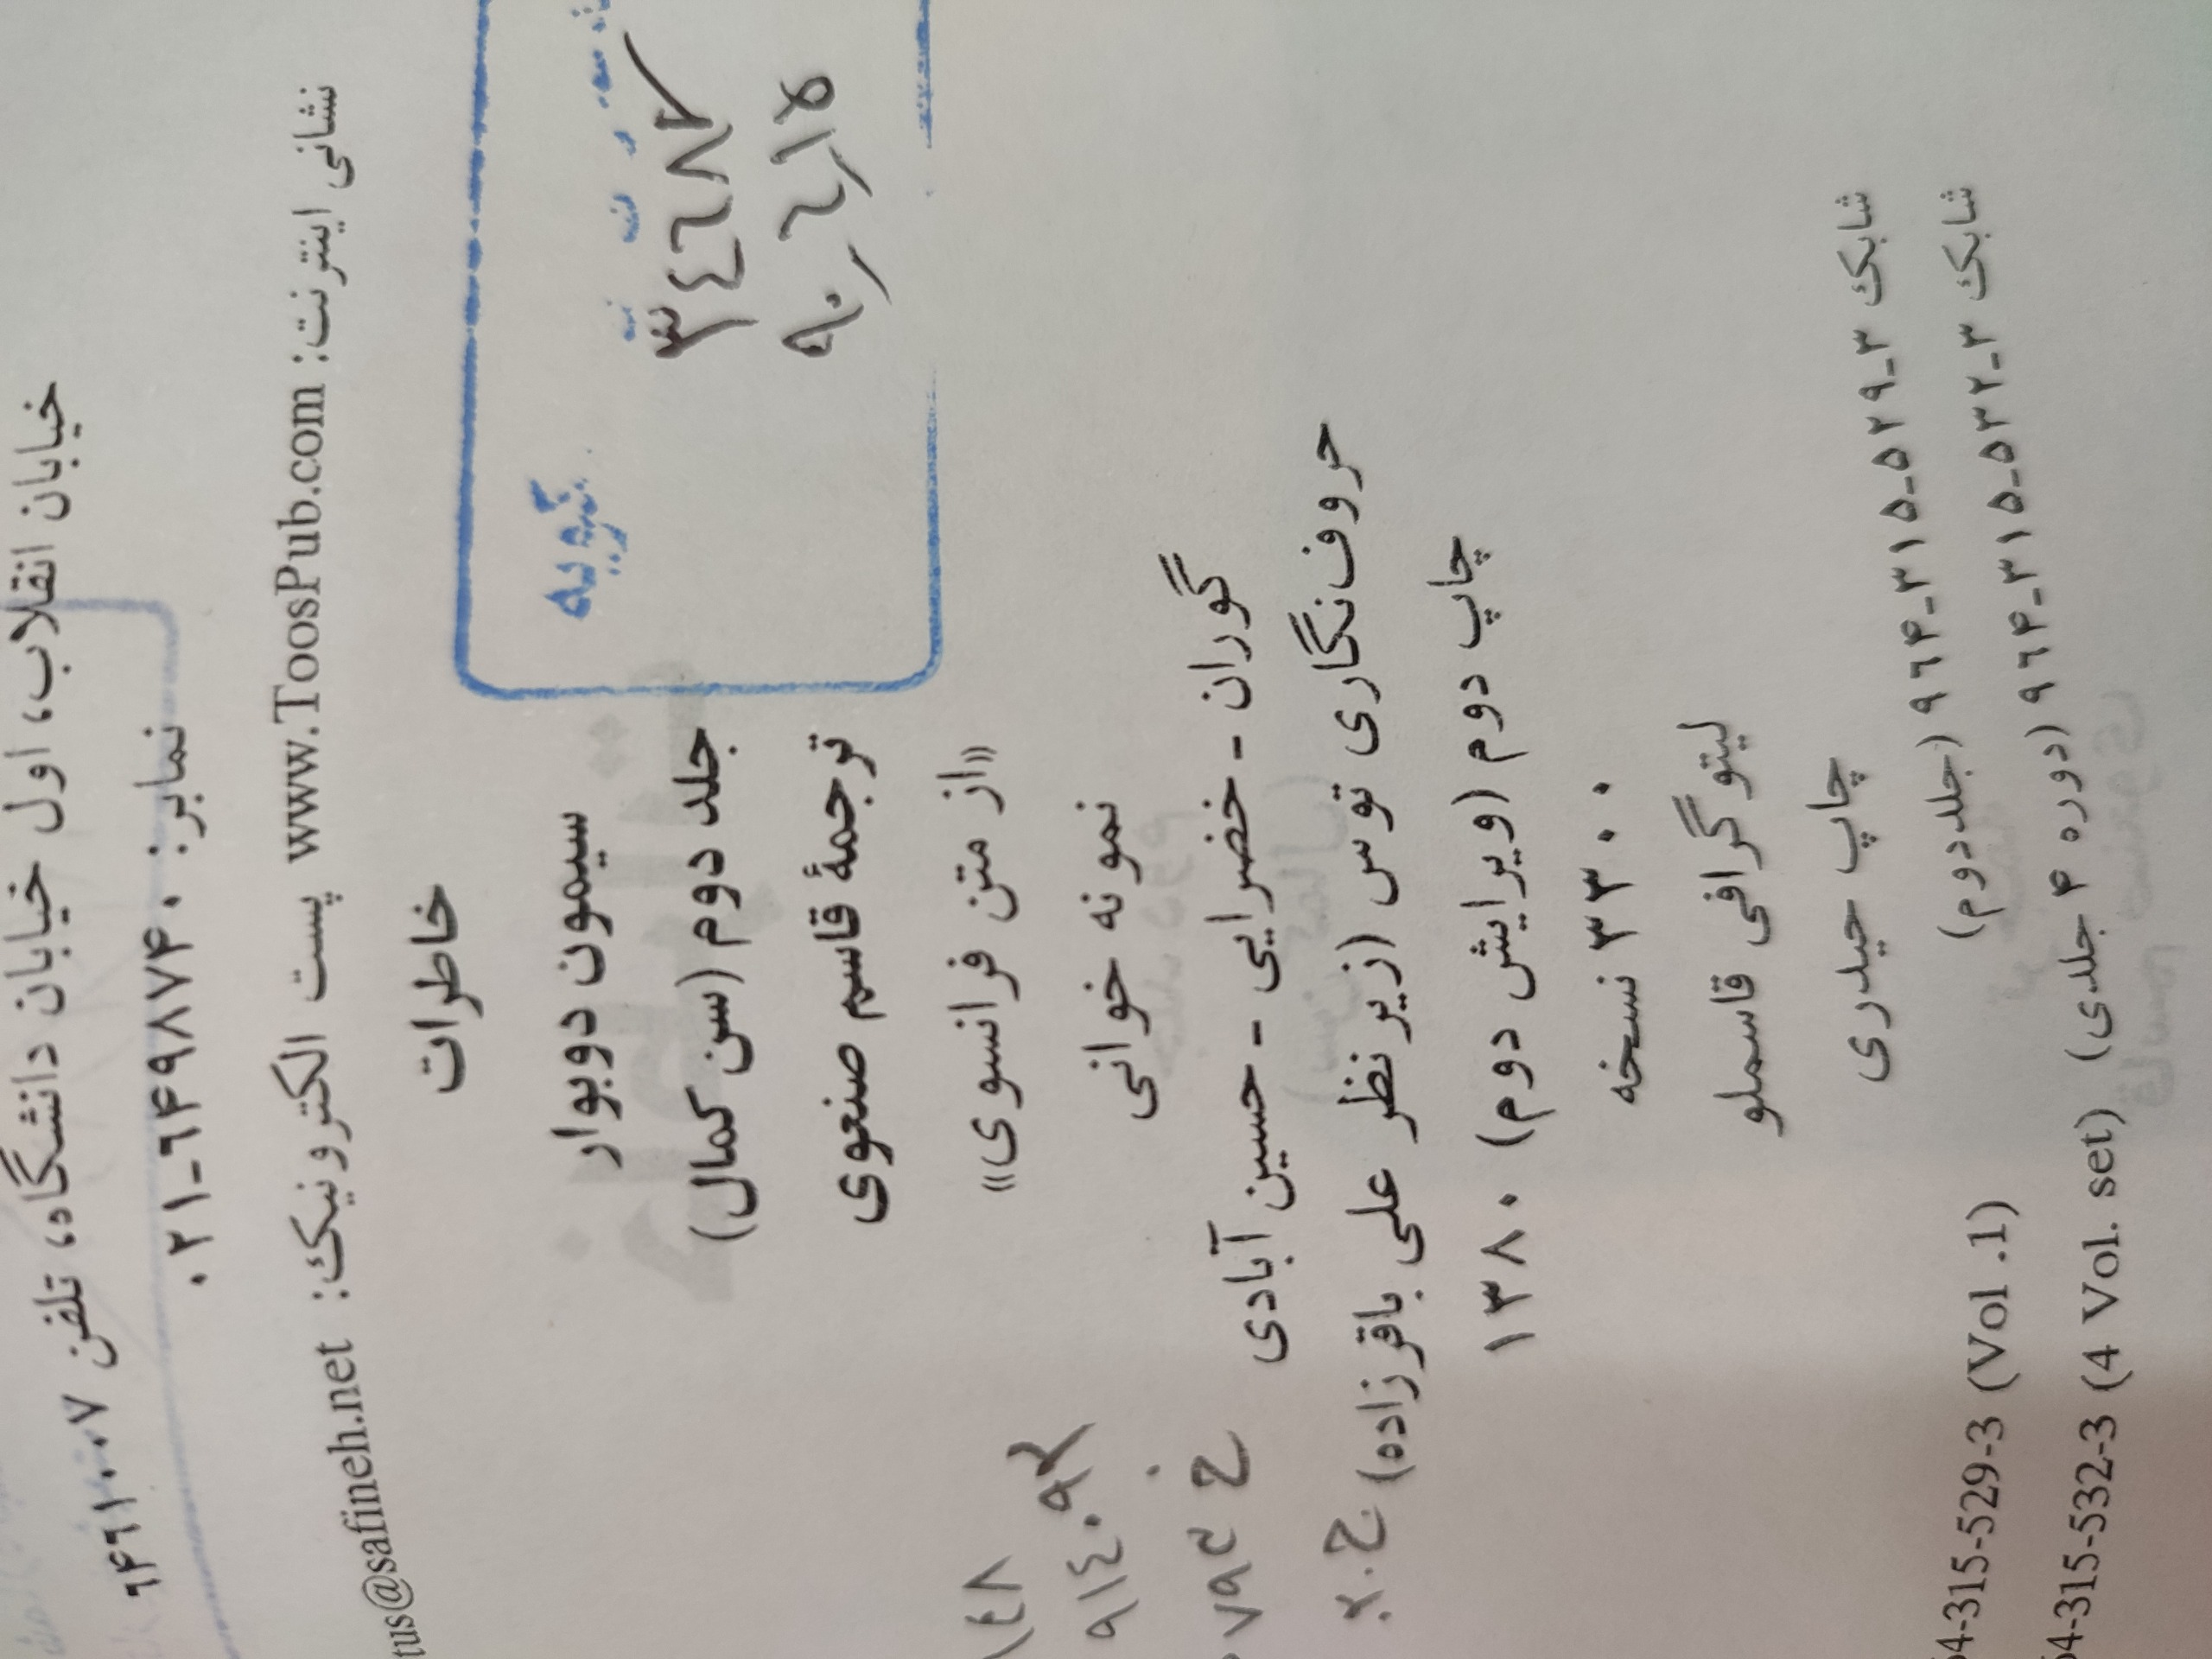 خیابان انقلاب، اول خیابان دانشگاه، تلفن ۶۴۶۱۰۰۷
نمابر: ۶۴۹۸۷۴۰-۰۲۱
نشانی اینترنت: www.ToosPub.com پست الکترونیک: tus@safineh.net
خاطرات
سیمون دوبوار
جلد دوم (سن کمال)
ترجمهٔ قاسم صنعوی
«از متن فرانسوی»
نمونه خوانی
گوران - خضرایی - حسین آبادی
حروف‌نگاری توس (زیر نظر علی باقرزاده)
چاپ دوم (ویرایش دوم) ۱۳۸۰
۳۳۰۰ نسخه
لیتوگرافی قاسملو
چاپ حیدری
شابک ۳-۵۲۹-۳۱۵-۹۶۴ (جلددوم)
شابک ۳-۵۳۲-۳۱۵-۹۶۴ (دوره ۴ جلدی)
64-315-529-3 (Vol .1)
64-315-532-3 (4 Vol. set)
۳٤٦۸۷
۹۰٫٦٫۱۵